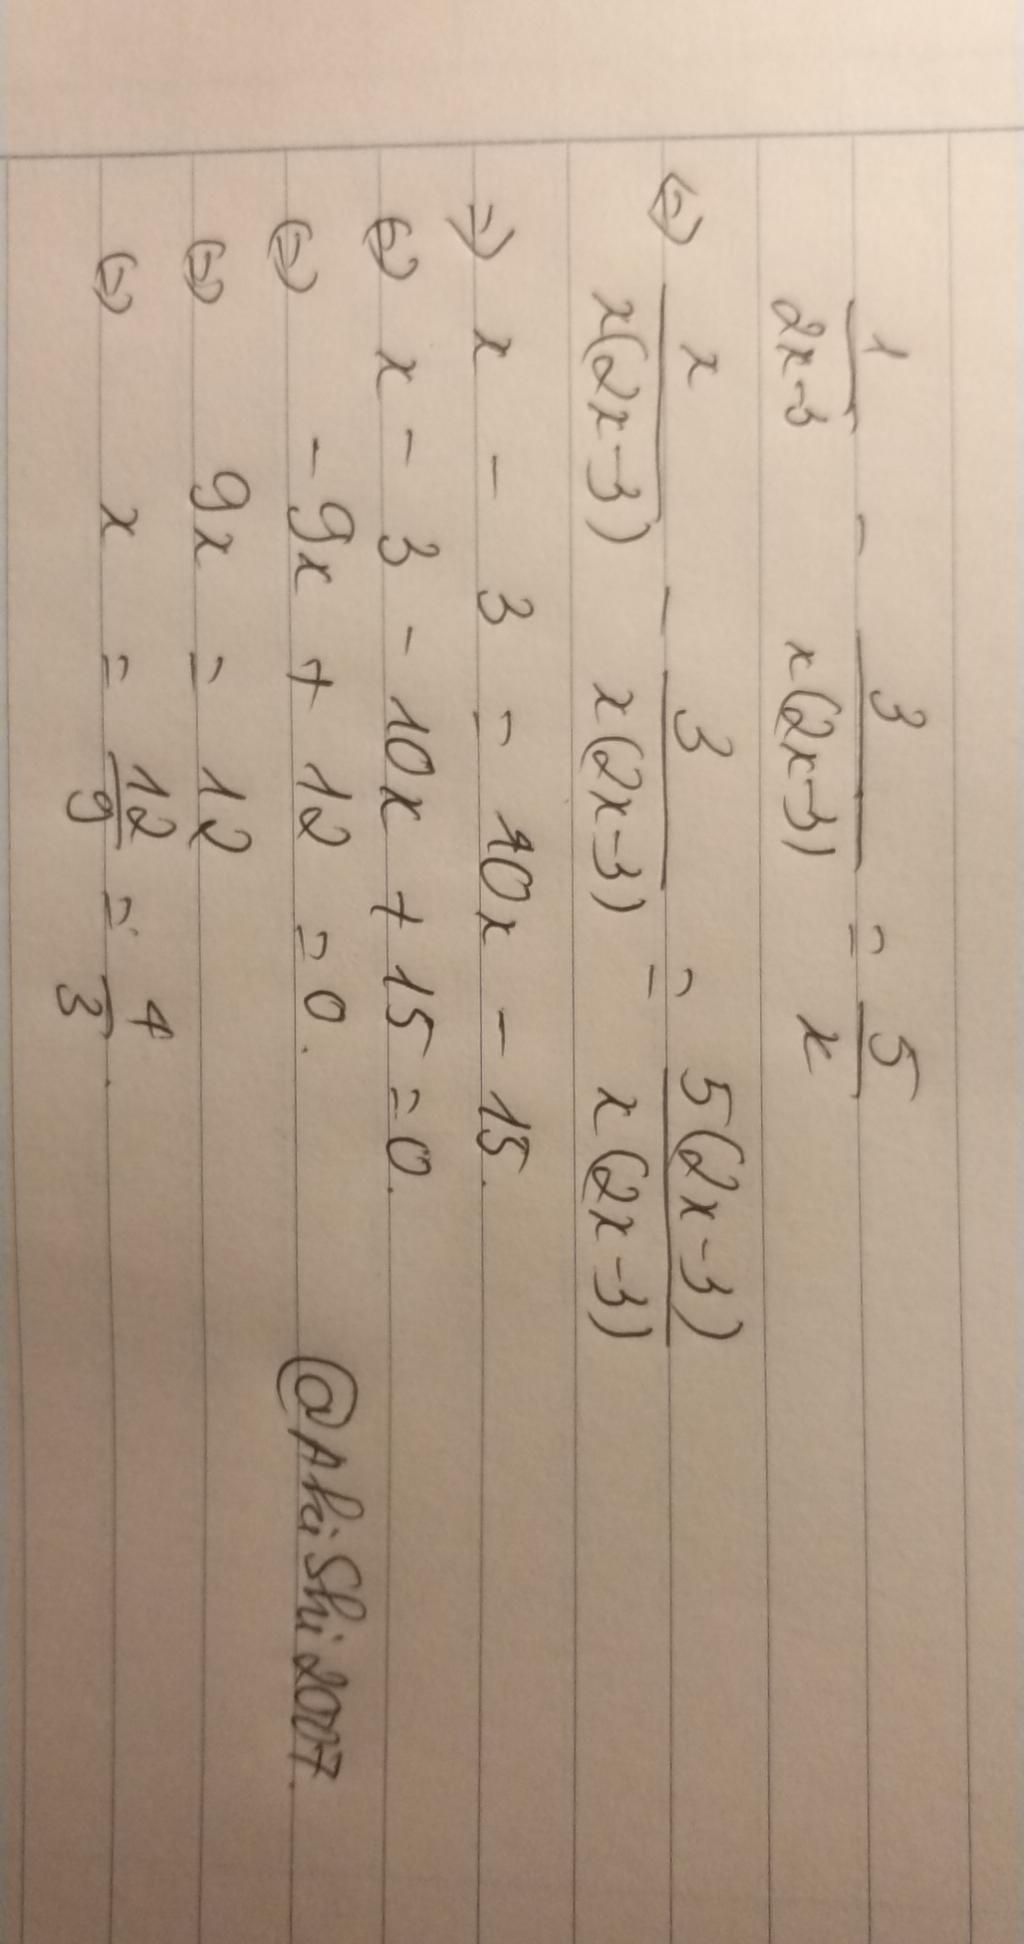 1/(2x-3) - 3/(x(2x-3)) = 5/x
⇔ x/(x(2x-3)) - 3/(x(2x-3)) = = 5(2x-3)/(x(2x-3))
⇒ x - 3 = 10x - 15.
⇔ x - 3 - 10x + 15 = 0.
⇔ -9x + 12 = 0.
⇔ 9x = 12
⇔ x = 12/9 = 4/3.
@AkiShi2007.